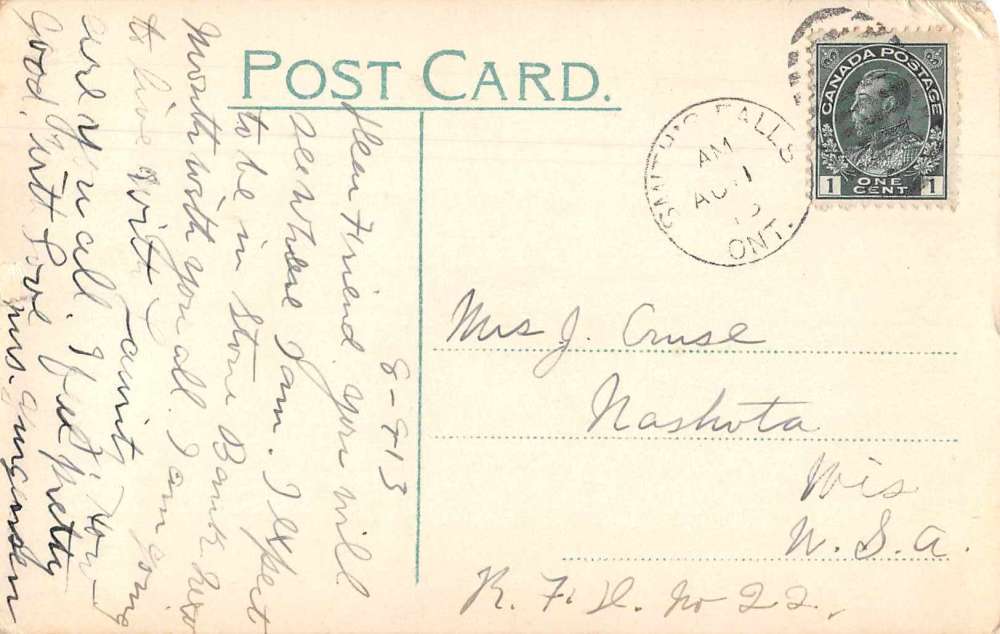 POST CARD.
CANADA POSTAGE
1 ONE CENT 1
SMITH'S FALLS
AM
AU 11
13
ONT.
8-9-13
Dear Friend. You will
see where I am. I expect
to be in Stone Bank next
Month with you all. I am going
to live with aunty. How
are you all. I feel pretty
good. with Love
Mrs. Jurgensen
Mrs J. Cruse
Nashota
Wis
U. S. A.
R. F. D. No 22.